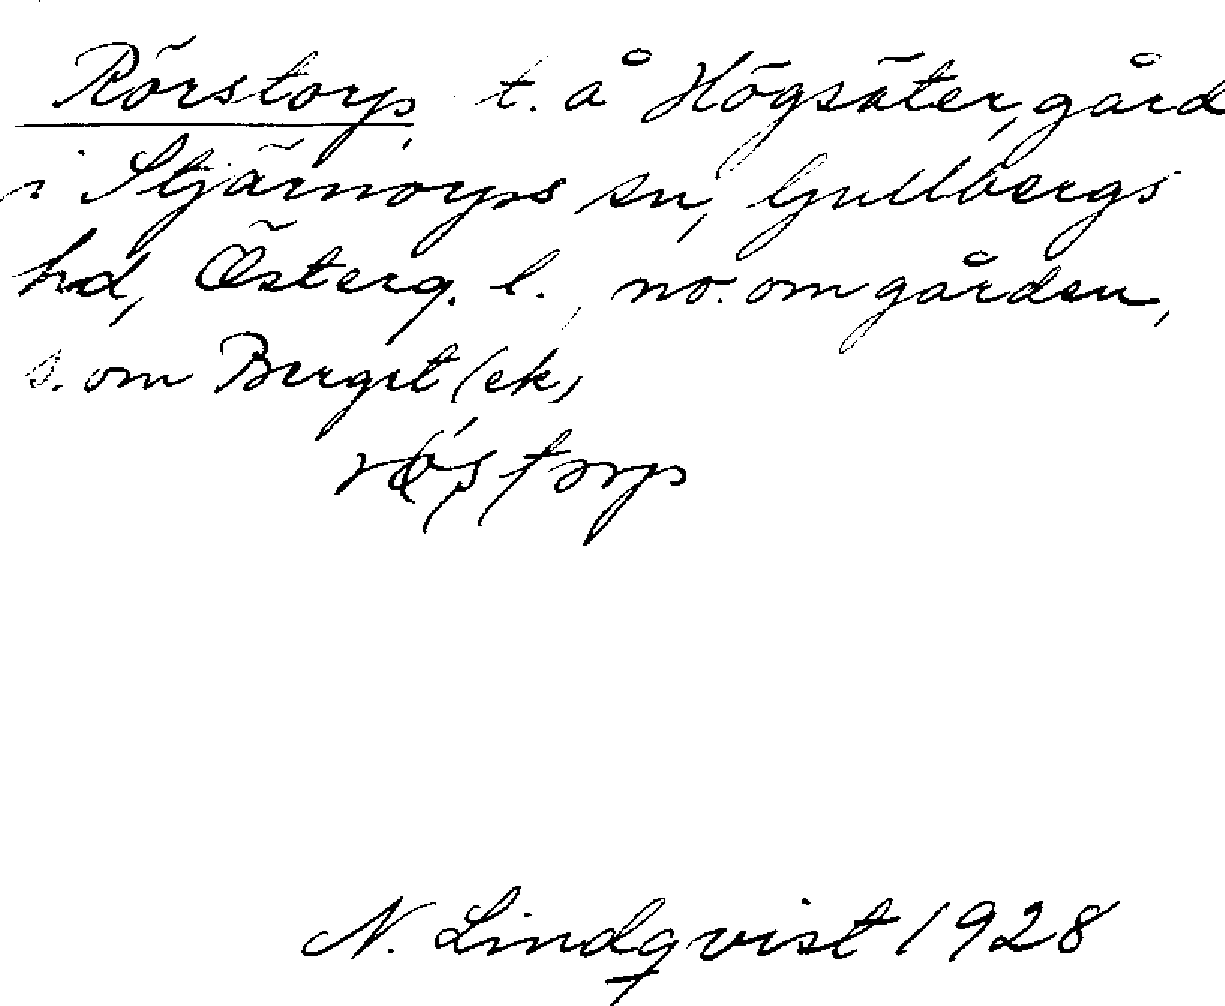 Rörstorp, t. å Högsäter, gård
i Stjärnorps sn, Gullbergs
hd, Österg. l., no. om gården,
s. om Berget (ek)
N. Lindqvist 1928